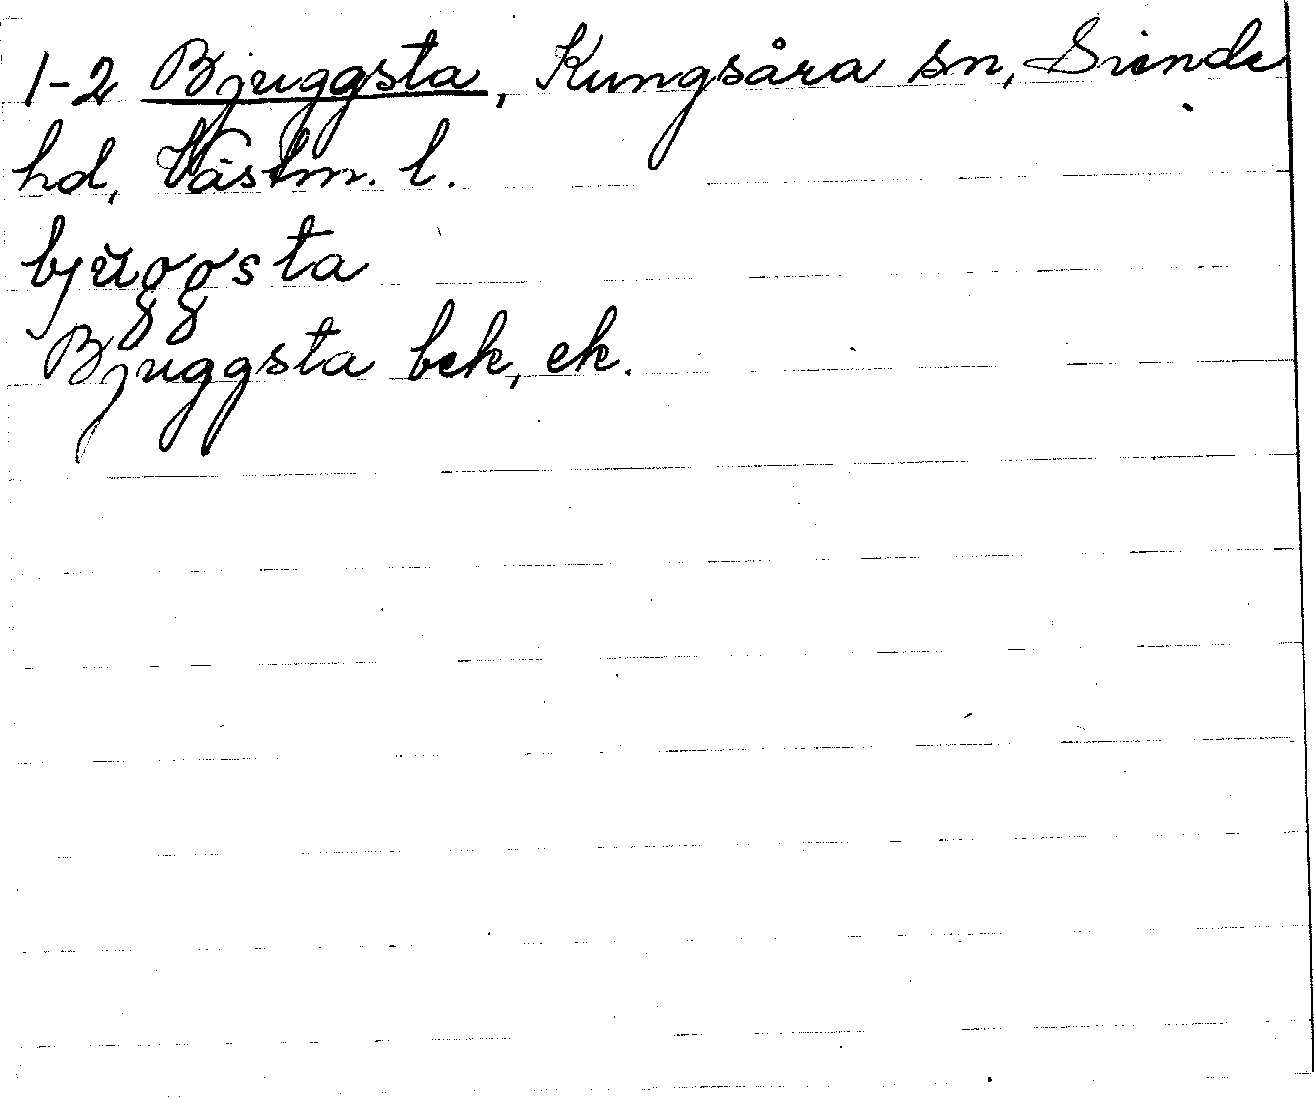 1-2 Bjuggsta, Kungsåra sn, Siende
hd, Västm. l.
bjŭggsta
Bjuggsta bek, ek.